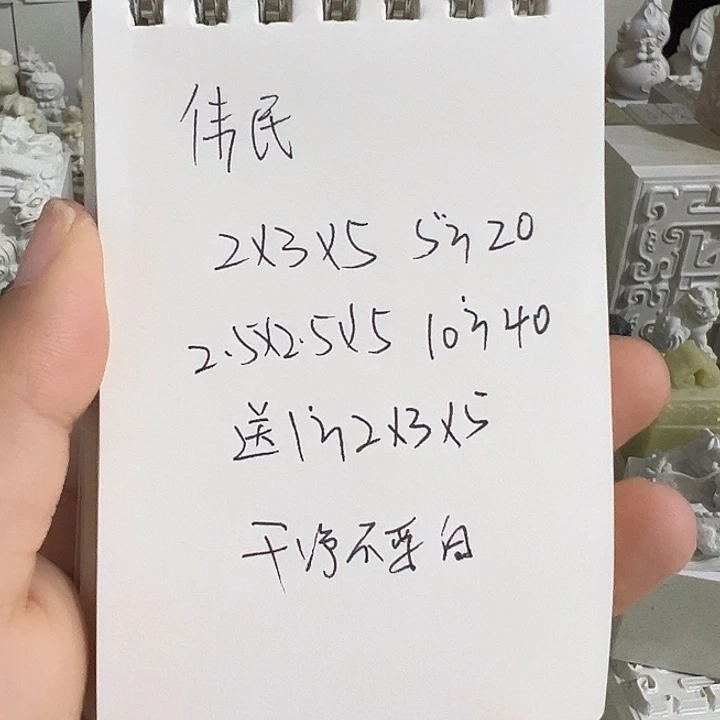 伟民
2X3X5 5方20
2.5X2.5X5 10方40
送1方2X3X5
干净不要白